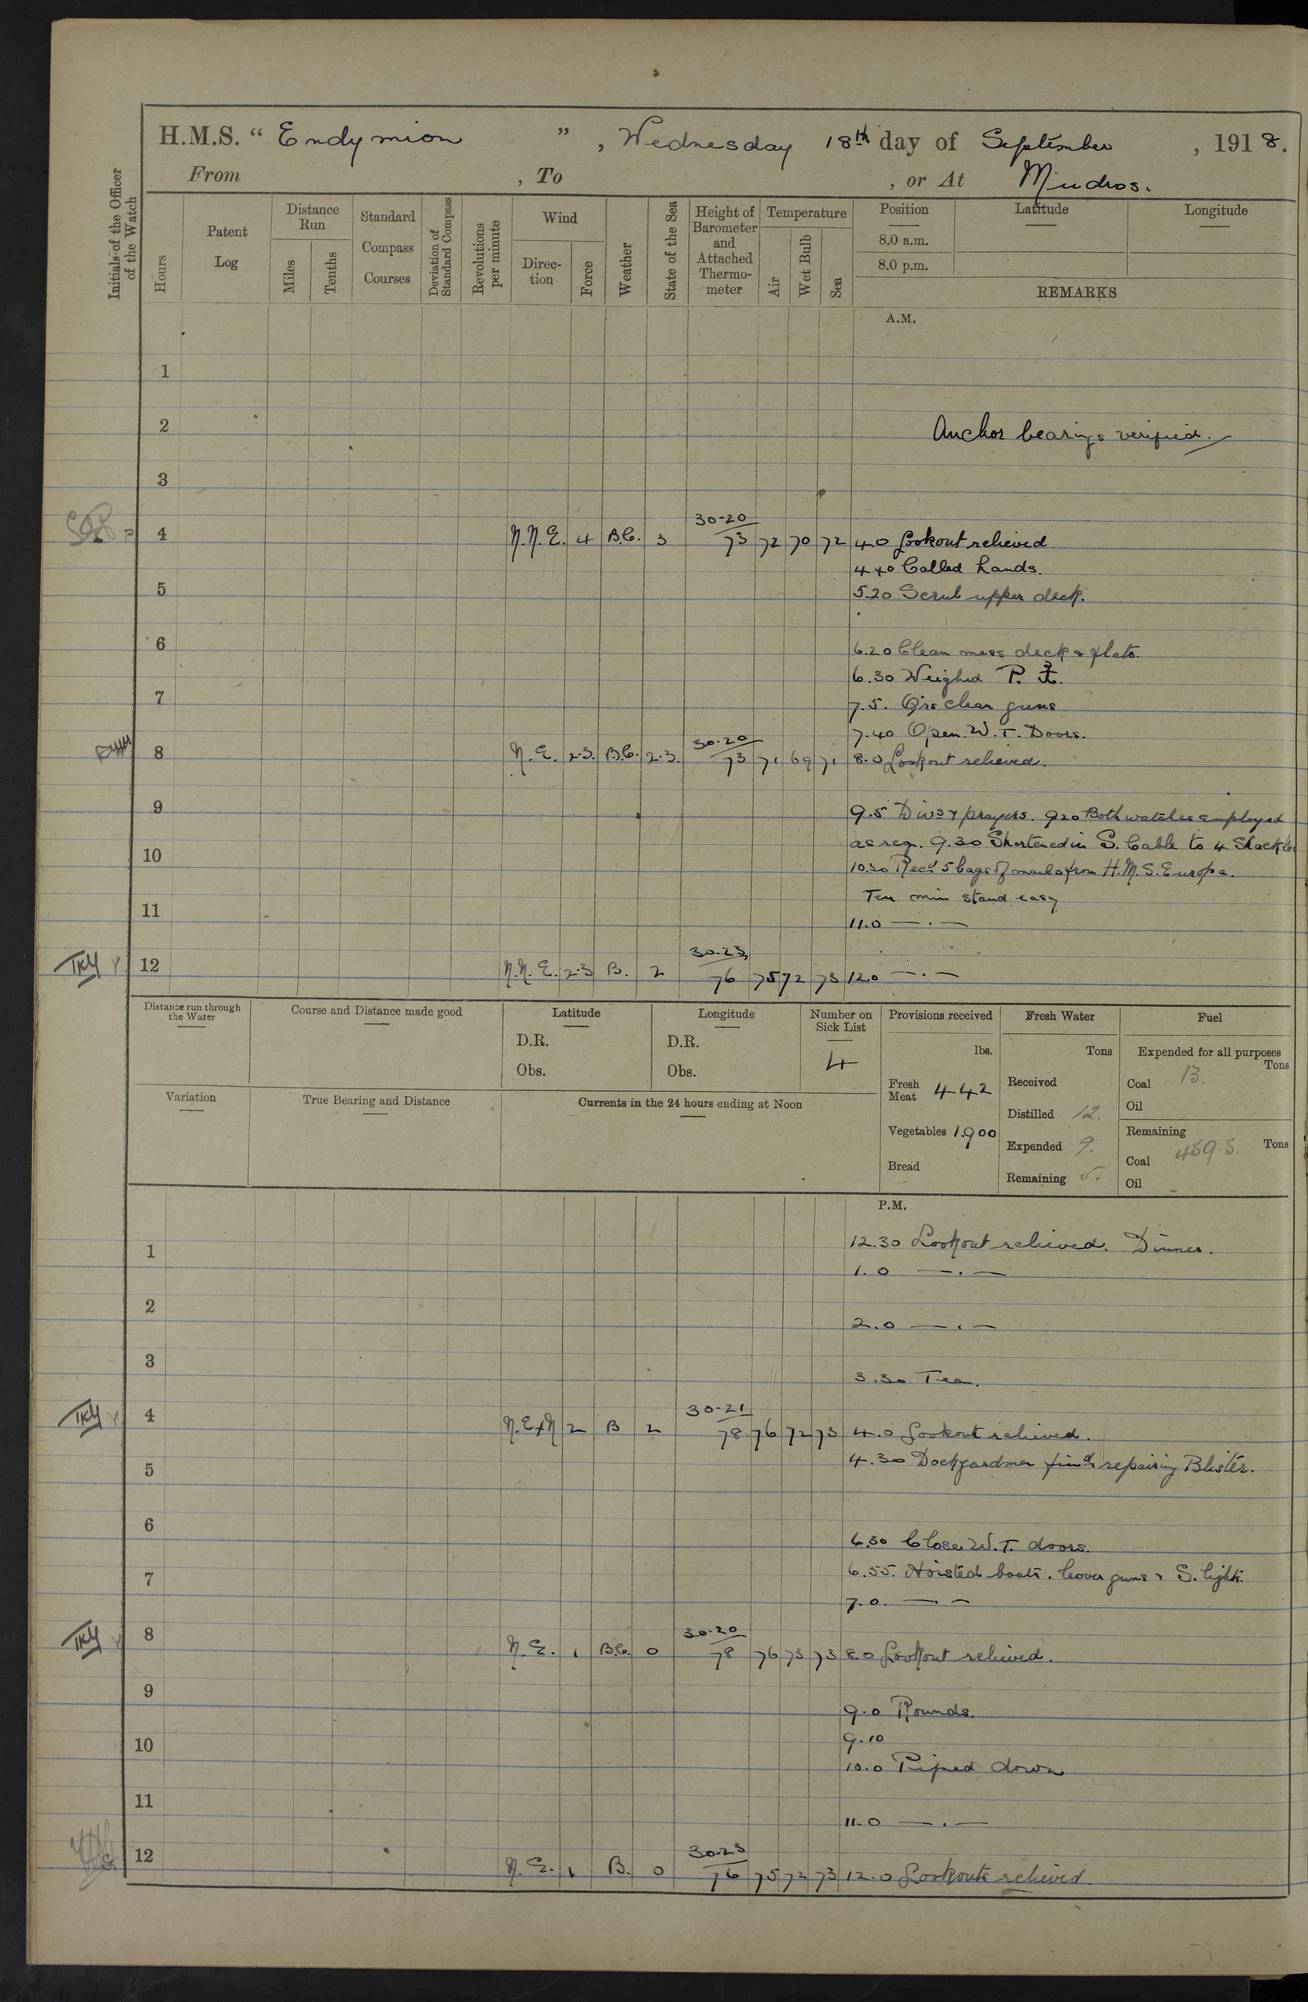 H.M.S. “ Endymion ”, Wednesday 18th day of September, 1918.
From , To , or At Mudros.
Initials of the Officer of the Watch
Hours
Patent Log
Distance Run
Miles
Tenths
Standard Compass Courses
Deviation of Standard Compass
Revolutions per minute
Wind
Direction
Force
Weather
State of the Sea
Height of Barometer and Attached Thermometer
Temperature
Air
Wet Bulb
Sea
Position
8.0 a.m.
8.0 p.m.
Latitude
Longitude
REMARKS
A.M.
1
2 Anchor bearings verified.
3
4 N.N.E. 4 B.C. 3 30-20 73 72 70 72 4.0 Lookout relieved
4.40 Called hands.
5
5.20 Scrub upper deck.
6
6.20 Clean mess deck & flats.
6.30 Weighed P.
7
7.5. Qrs clean guns
7.40 Open W.T. Doors.
8 N.E. 2-3. B.C. 2-3. 30-20 73 71 69 71 8.0 Lookout relieved.
9
9.5 Divs & prayers. 9.20 Both watches employed
as req. 9.30 Shortened in S. Cable to 4 Shackles
10
10.30 Recd 5 bags of mails from H.M.S. Europa.
Ten min stand easy
11
11.0 —.—
TKY 12 N.N.E. 2-3 B. 2 30-23 76 75 72 73 12.0 —.—
Distance run through the Water
Course and Distance made good
Latitude
D.R.
Obs.
Longitude
D.R.
Obs.
Number on Sick List
4
Provisions received
lbs.
Fresh Meat 442
Vegetables 1900
Bread
Fresh Water
Tons
Received
Distilled 12.
Expended 9.
Remaining 5.
Fuel
Expended for all purposes
Tons
Coal 13.
Oil
Remaining
Tons
Coal 459.5.
Oil
Variation
True Bearing and Distance
Currents in the 24 hours ending at Noon
P.M.
12.30 Lookout relieved. Dinner.
1
1.0 —.—
2
2.0 —.—
3
3.30 Tea.
TKY 4 N.E×N 2 B 2 30-21 78 76 72 73 4.0 Lookout relieved.
4.30 Dockyardmen find repairing Blister.
5
6
6.30 Close W.T. doors.
6.55. Hoisted boats. Cover guns & S. lights.
7
7.0. —.—
TKY 8 N.E. 1 B.C. 0 30-20 78 76 73 73 8.0 Lookout relieved.
9
9.0 Rounds.
9.10
10
10.0 Piped down
11
11.0 —.—
12 N.E. 1 B. 0 30-23 76 75 72 73 12.0 Lookouts relieved.